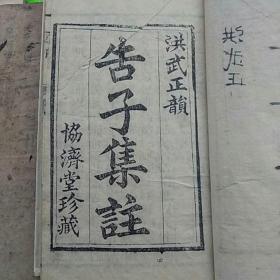 洪武正韻
告子集註
協濟堂珍藏